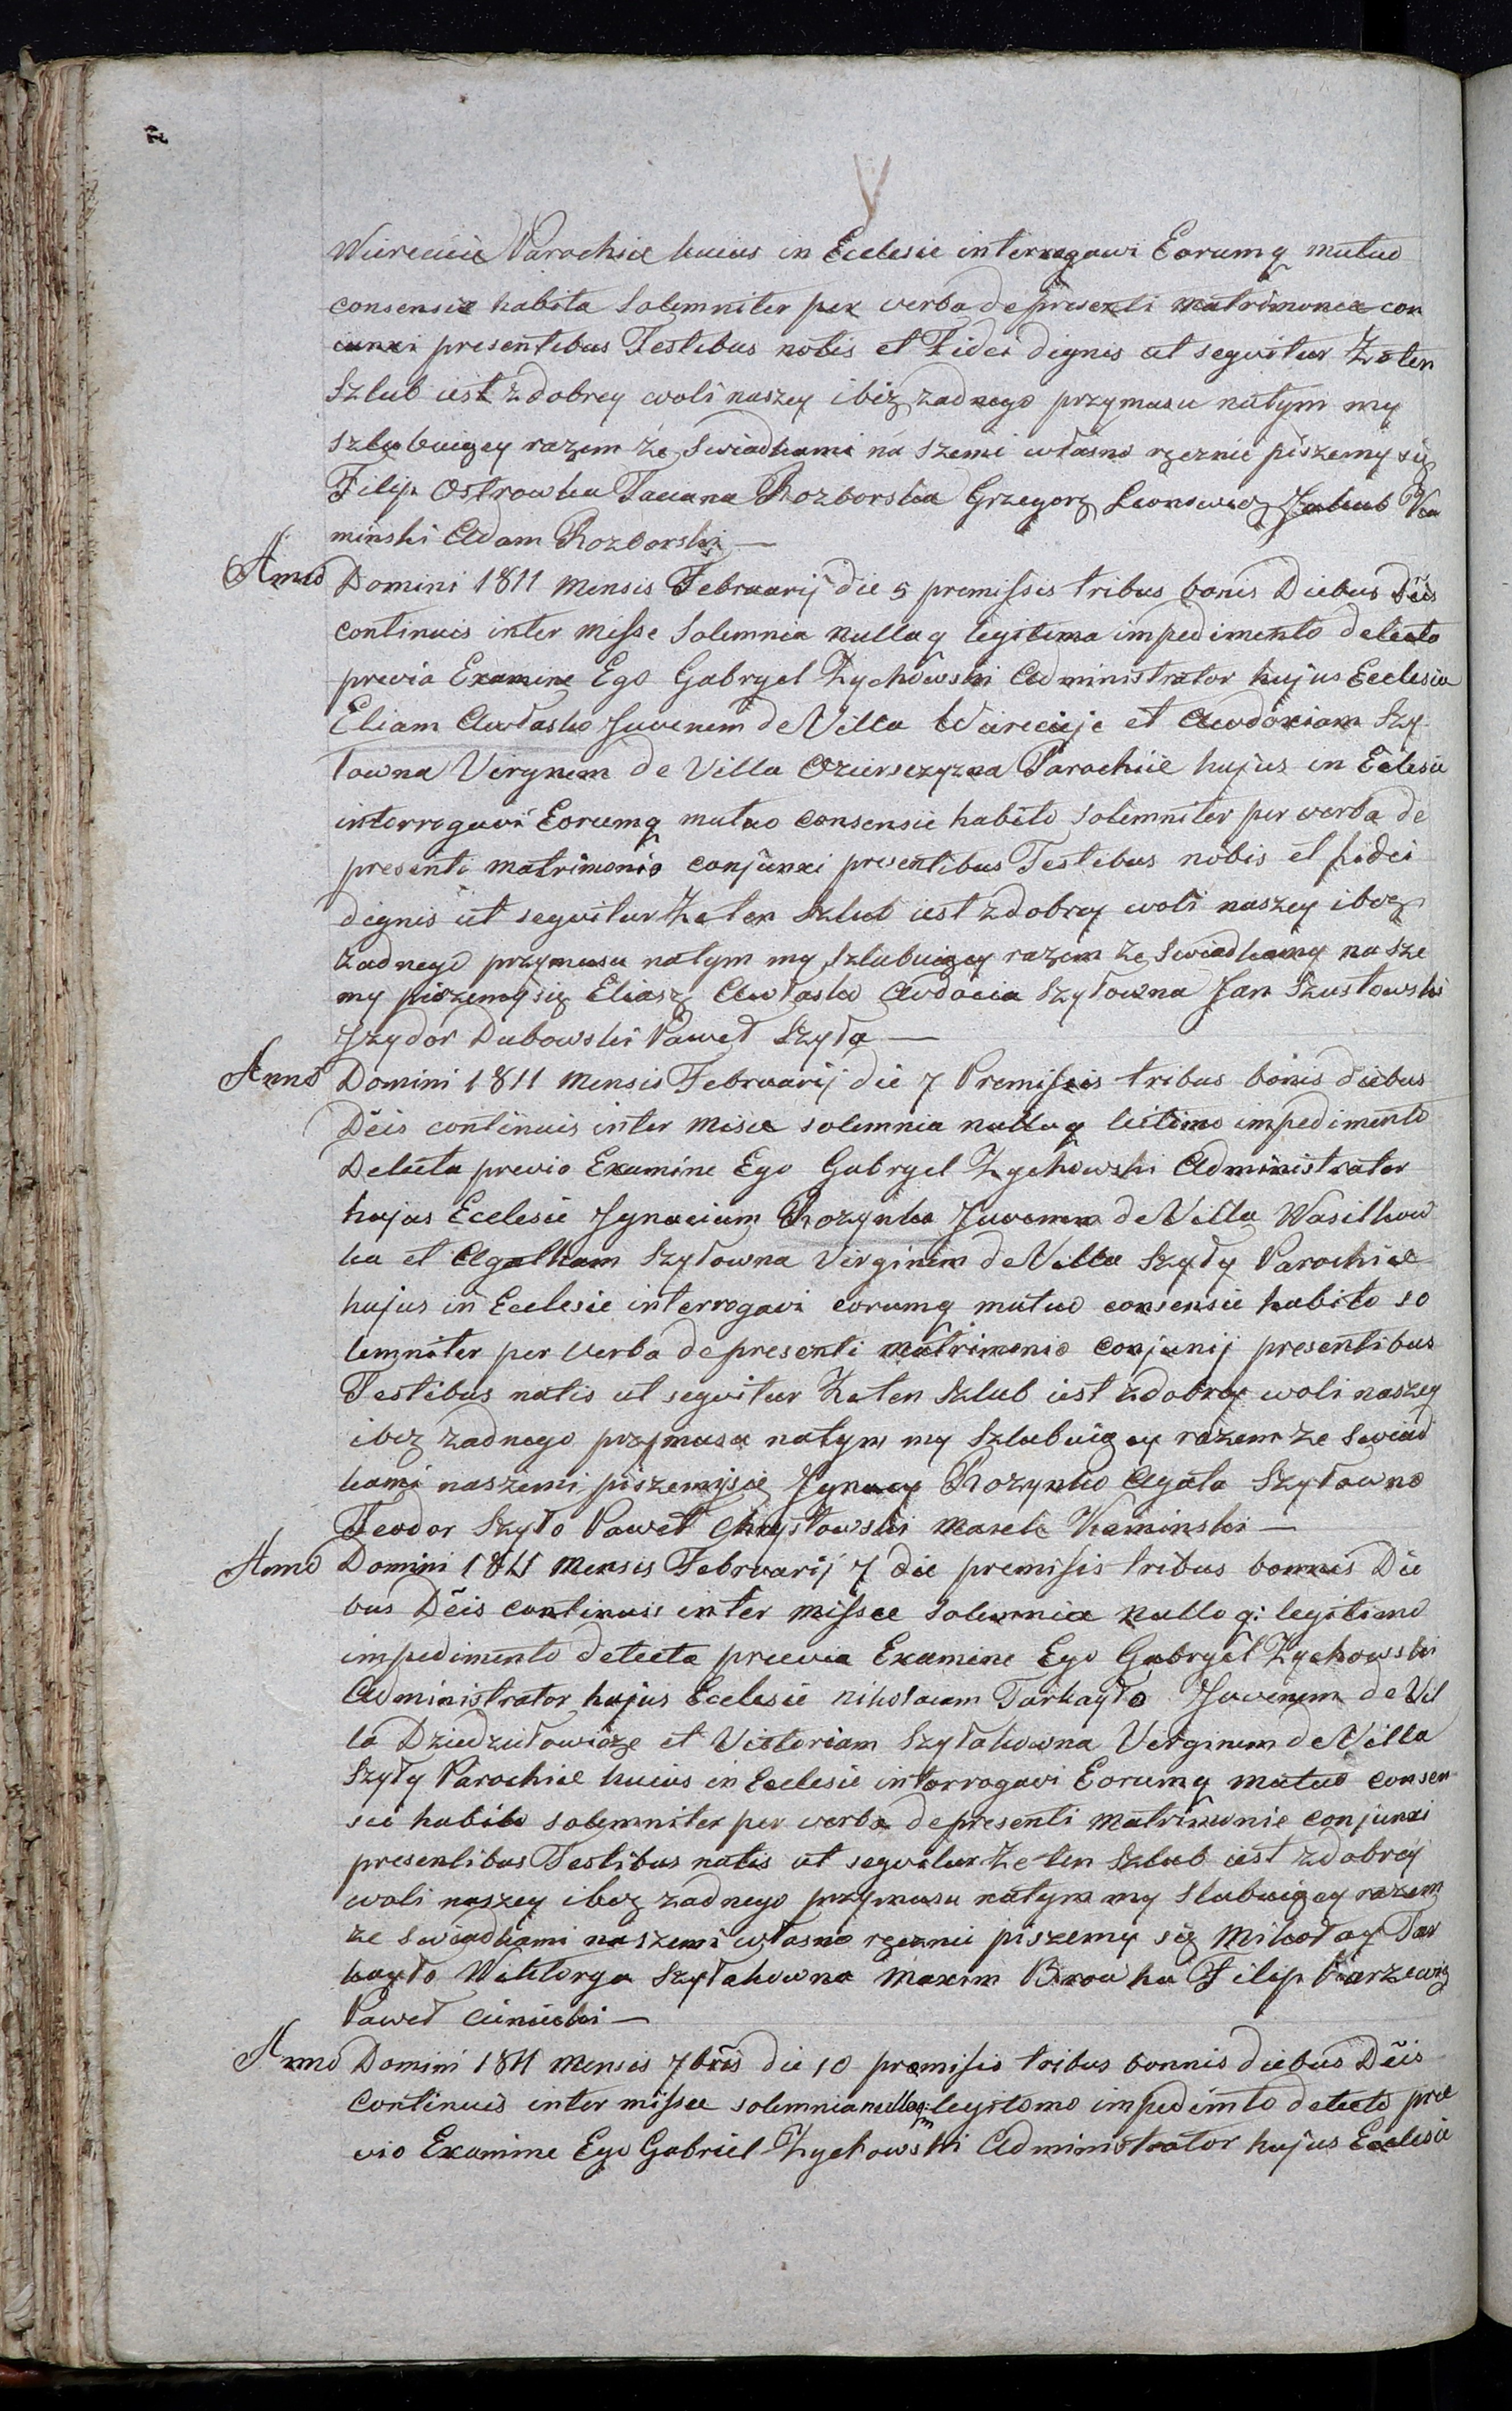 Wiereicie Parochiæ huius in Ecclesie interrogawi Eorumq mutuo
consensie habita Solemniter per verba de presenti matrimonea con
iunxi presentibus Testibus notis et Fidei dignis ut seguitur Że ten
Szlub iest z dobrey woli naszey i bez zadnego przymusu natym my
szlubuięcy razem że swiadkami na szemi własno ręcznie piszemy się
Filip Ostrowka Taciana Rozborska Grzegorz Leonowicz Jakub Ka
minski Adam Rozborski —
Anno Domini 1811 Mensis Februarij die 5 premissis tribus banis Diebus Dĕis
continuis inter Misse Solemnia nullaq legitema impedimento detecto
previa Examine Ego Gabryel Zychowski Administrator hujus Ecclesia
Eliam Awłasko Juvenem de Villa Wiereicije et Awdoxiam Szy
łowna Virgnem de Villa Ozierszczyzna Parochiie hujus in Eclesie
interrogavi Eorumq mutuo consensie habito solemniter per verba de
presenti matrimonio conjunxi presentibus Testibus nobis et fidei
dignis ut seguitur Że ten Szlub iest z dobrey woli naszey i bez
żadnego przymusu natym my szlubuięcy razem że swiadkamy na sze
my piszemy się Eliasz Awłasko Awdocia Szyłowna Jan Szustowski
Jzydor Dubowski Paweł Szyła —
Anno Domini 1811 Mensis Februarij die 7 Premissis tribus bonis diebus
Dĕis continuis inter Misse solemnia nullaq leitimo impedimento
Detecta previo Examine Ego Gabryel Zychowski Administrator
hujus Ecclesie Jgnacium Rozynko Juvenem de Villa Wasilkow
ka et Agatham Szyłowna Virginem de Villa Szyły Parochiæ
hujus in Ecclesie interrogavi eorumq mutuo consensie habito so
lemniter per verba de presenti matrimonio conjunij presentibus
Testibus natis ut seguitur Że ten Szlub iest z dobrey woli naszey
i bez zadnego przymusu natym my Szlubuięcy razem ze swiad
kami naszemi piszemysie Jgnacy Rozynko Agata Szyłowno
Teodor Szyło Paweł Chrystowski Marek Kaminski —
Anno Domini 1811 Mensis Februarij 7 die premisis tribus bannis Die
bus Dĕis continuis inter missæ solemnia nullo q: legitimo
impedimento detecta prævia Examine Ego Gabryel Zychowski
Administrator hujus Ecclesie Nikolaum Tarkayło Juvenem de Vil
la Dziedziułowicze et Victoriam Szyłakowna Virginem de Villa
Szyły Parochiæ huius in Ecclesie interrogavi Eorumq mutuo consen
sie habito solemniter per verba de presenti matrimonio conjunxi
presentibus Testibus natis ut seguitur Że ten Szlub iest z dobrey
woli naszey i bez zadnego przymusu natym my Slubuięcy razem
ze swiadkami naszemi własno ręcznie piszemy się Mikołay Tar
kayło Wiktorya Szyłakowna Maxim Browka Filip Karzewicz
Paweł Cimicki —
Anno Domini 1811 Mensis 7bris die 10 premisis tribus bonnis diebus Dĕis
Continuis inter missæ solemnia nulloq: legitomo impedimto detecto præ
vio Examine Ego Gabriel Zychowski Administrator hujus Ecclesiæ